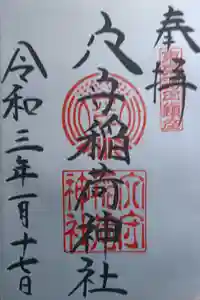 奉拝
穴守稲荷神社
令和三年一月十七日
穴守
稲荷
神社